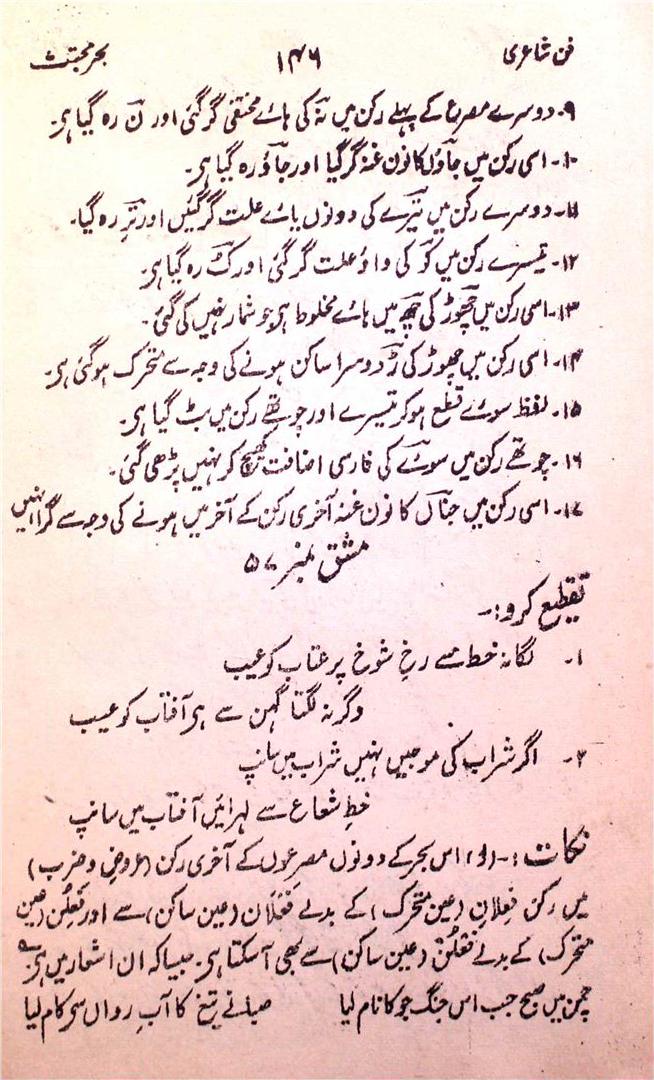 فن شاعری ۱۴۶ بحر مجتث
۹۔ دوسرے مصرع کے پہلے رکن میں نہ کی ہائے مختفی گر گئی اور ن رہ گیا ہی۔
۱۰۔ اسی رکن میں جاؤں کا نون غنہ گر گیا اور جاؤ رہ گیا ہی۔
۱۱۔ دوسرے رکن میں تیرے کی دونوں یائے علت گر گئیں اور تر رہ گیا۔
۱۲۔ تیسرے رکن میں کو کی واؤ علت گر گئی اور ک رہ گیا ہی۔
۱۳۔ اسی رکن میں چھوڑ کی چھ میں ہائے مخلوط ہی جو شمار نہیں کی گئی۔
۱۴۔ اسی رکن میں چھوڑ کی ڑ دوسرا ساکن ہونے کی وجہ سے متحرک ہو گئی ہی۔
۱۵۔ لفظ سوئے قطع ہو کر تیسرے اور چوتھے رکن میں بٹ گیا ہی۔
۱۶۔ چوتھے رکن میں سوئے کی فارسی اضافت کھینچ کر نہیں پڑھی گئی۔
۱۷۔ اسی رکن میں جناں کا نون غنہ آخری رکن کے آخر میں ہونے کی وجہ سے گرا نہیں
مشق نمبر ۵۷
تقطیع کرو:۔
۱۔ لگا نہ خط سے رخِ شوخ پر عتاب کو عیب
وگرنہ لگتا گہن سے ہی آفتاب کو عیب
۲۔ اگر شراب کی موجیں نہیں شراب میں سانپ
خطِ شعاع سے لہرائیں آفتاب میں سانپ
نکات:۔ (۱) اس بحر کے دونوں مصرعوں کے آخری رکن (عروض و ضرب)
میں رکن فعِلان (عین متحرک) کے بدلے فعْلان (عین ساکن) سے اور فعِلن (عین
متحرک) کے بدلے فعْلن (عین ساکن) سے بھی آ سکتا ہی۔ جیسا کہ ان اشعار میں ہی۔
چمن میں صبح جب اس جنگ جو کا نام لیا صبا نے تیغ کا آبِ رواں سے کام لیا